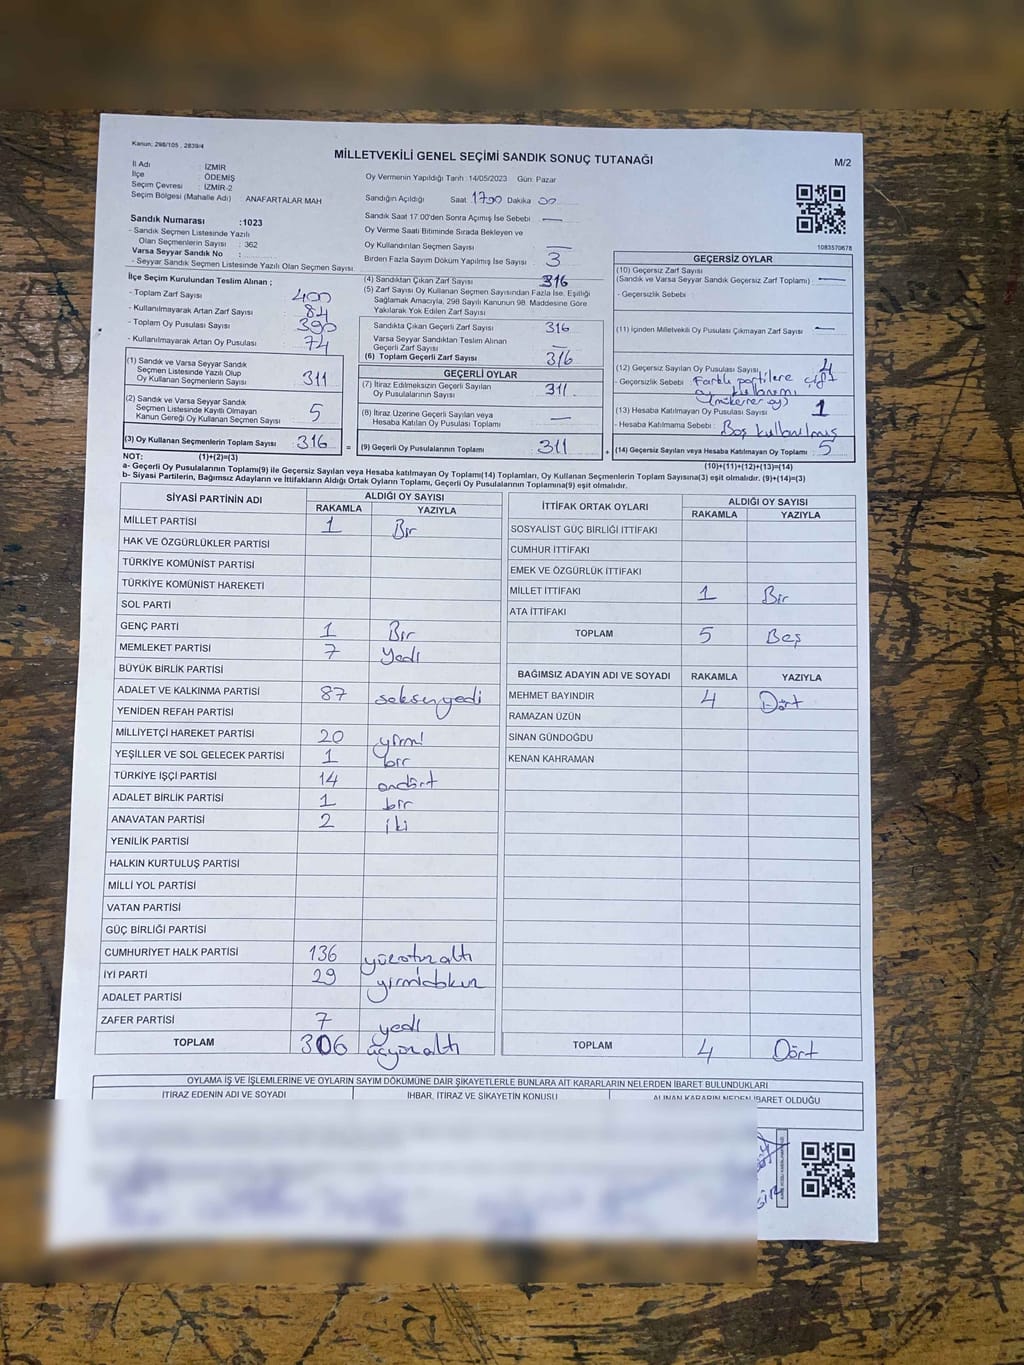 Kanun: 298/105 , 2839/4
MİLLETVEKİLİ GENEL SEÇİMİ SANDIK SONUÇ TUTANAĞI
M/2
İl Adı : İZMİR
İlçe : ÖDEMİŞ
Seçim Çevresi : İZMİR-2
Seçim Bölgesi (Mahalle Adı) ANAFARTALAR MAH
Sandık Numarası :1023
- Sandık Seçmen Listesinde Yazılı
Olan Seçmenlerin Sayısı : 362
Varsa Seyyar Sandık No :
- Seyyar Sandık Seçmen Listesinde Yazılı Olan Seçmen Sayısı
Oy Vermenin Yapıldığı Tarih :14/05/2023 Gün: Pazar
Sandığın Açıldığı Saat 1700 Dakika 00
Sandık Saat 17:00'den Sonra Açımış İse Sebebi —
Oy Verme Saati Bitiminde Sırada Bekleyen ve
Oy Kullandırılan Seçmen Sayısı —
Birden Fazla Sayım Döküm Yapılmış İse Sayısı 3
1083570678
İlçe Seçim Kurulundan Teslim Alınan ;
- Toplam Zarf Sayısı 400
- Kullanılmayarak Artan Zarf Sayısı 84
- Toplam Oy Pusulası Sayısı 390
- Kullanılmayarak Artan Oy Pusulası 74
(1) Sandık ve Varsa Seyyar Sandık
Seçmen Listesinde Yazılı Olup
Oy Kullanan Seçmenlerin Sayısı 311
(2) Sandık ve Varsa Seyyar Sandık
Seçmen Listesinde Kayıtlı Olmayan
Kanun Gereği Oy Kullanan Seçmen Sayısı 5
(3) Oy Kullanan Seçmenlerin Toplam Sayısı 316 =
(4) Sandıktan Çıkan Zarf Sayısı 316
(5) Zarf Sayısı Oy Kullanan Seçmen Sayısından Fazla İse, Eşitliği
Sağlamak Amacıyla, 298 Sayılı Kanunun 98. Maddesine Göre
Yakılarak Yok Edilen Zarf Sayısı
Sandıkta Çıkan Geçerli Zarf Sayısı 316
Varsa Seyyar Sandıktan Teslim Alınan
Geçerli Zarf Sayısı —
(6) Toplam Geçerli Zarf Sayısı 316
GEÇERLİ OYLAR
(7) İtiraz Edilmeksizin Geçerli Sayılan
Oy Pusulalarının Toplamı 311
(8) İtiraz Üzerine Geçerli Sayılan veya
Hesaba Katılan Oy Pusulaları Toplamı —
(9) Geçerli Oy Pusulalarının Toplamı 311 +
GEÇERSİZ OYLAR
(10) Geçersiz Zarf Sayısı
(Sandık ve Varsa Seyyar Sandık Geçersiz Zarf Toplamı) —
- Geçersizlik Sebebi
(11) İçinden Milletvekili Oy Pusulası Çıkmayan Zarf Sayısı —
(12) Geçersiz Sayılan Oy Pusulası Sayısı 4
- Geçersizlik Sebebi Farklı partilere çift
oy kullanımı
(mükerrer oy)
(13) Hesaba Katılmayan Oy Pusulası Sayısı 1
- Hesaba Katılmama Sebebi Boş kullanılmış
(14) Geçersiz Sayılan veya Hesaba Katılmayan Oy Toplamı 5
NOT: (1)+(2)=(3)
(10)+(11)+(12)+(13)=(14)
a- Geçerli Oy Pusulalarının Toplamı(9) ile Geçersiz Sayılan veya Hesaba katılmayan Oy Toplamı(14) Toplamları, Oy Kullanan Seçmenlerin Toplam Sayısına(3) eşit olmalıdır. (9)+(14)=(3)
b- Siyasi Partilerin, Bağımsız Adayların ve İttifakların Aldığı Ortak Oyların Toplamı, Geçerli Oy Pusulalarının Toplamına(9) eşit olmalıdır.
SİYASİ PARTİNİN ADI ALDIĞI OY SAYISI
RAKAMLA YAZIYLA
MİLLET PARTİSİ 1 Bir
HAK VE ÖZGÜRLÜKLER PARTİSİ
TÜRKİYE KOMÜNİST PARTİSİ
TÜRKİYE KOMÜNİST HAREKETİ
SOL PARTİ
GENÇ PARTİ 1 Bir
MEMLEKET PARTİSİ 7 Yedi
BÜYÜK BİRLİK PARTİSİ
ADALET VE KALKINMA PARTİSİ 87 seksenyedi
YENİDEN REFAH PARTİSİ
MİLLİYETÇİ HAREKET PARTİSİ 20 yirmi
YEŞİLLER VE SOL GELECEK PARTİSİ 1 bir
TÜRKİYE İŞÇİ PARTİSİ 14 ondört
ADALET BİRLİK PARTİSİ 1 bir
ANAVATAN PARTİSİ 2 iki
YENİLİK PARTİSİ
HALKIN KURTULUŞ PARTİSİ
MİLLİ YOL PARTİSİ
VATAN PARTİSİ
GÜÇ BİRLİĞİ PARTİSİ
CUMHURİYET HALK PARTİSİ 136 yüzotuzaltı
İYİ PARTİ 29 yirmidokuz
ADALET PARTİSİ
ZAFER PARTİSİ 7 yedi
TOPLAM 306 üçyüzaltı
İTTİFAK ORTAK OYLARI ALDIĞI OY SAYISI
RAKAMLA YAZIYLA
SOSYALİST GÜÇ BİRLİĞİ İTTİFAKI
CUMHUR İTTİFAKI
EMEK VE ÖZGÜRLÜK İTTİFAKI
MİLLET İTTİFAKI 1 Bir
ATA İTTİFAKI
TOPLAM 5 Beş
BAĞIMSIZ ADAYIN ADI VE SOYADI RAKAMLA YAZIYLA
MEHMET BAYINDIR 4 Dört
RAMAZAN ÜZÜN
SİNAN GÜNDOĞDU
KENAN KAHRAMAN
TOPLAM 4 Dört
OYLAMA İŞ VE İŞLEMLERİNE VE OYLARIN SAYIM DÖKÜMÜNE DAİR ŞİKAYETLERLE BUNLARA AİT KARARLARIN NELERDEN İBARET BULUNDUKLARI
İTİRAZ EDENİN ADI VE SOYADI İHBAR, İTİRAZ VE ŞİKAYETİN KONUSU ALINAN KARARIN NEDEN İBARET OLDUĞU